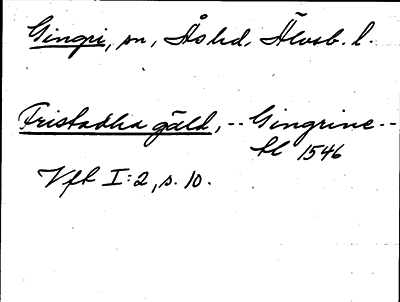 Gingri, sn, Ås hd, Älvsb. l.
Fristadha gäld, -- Gingrine --
tl 1546
Vft I:2, s. 10.